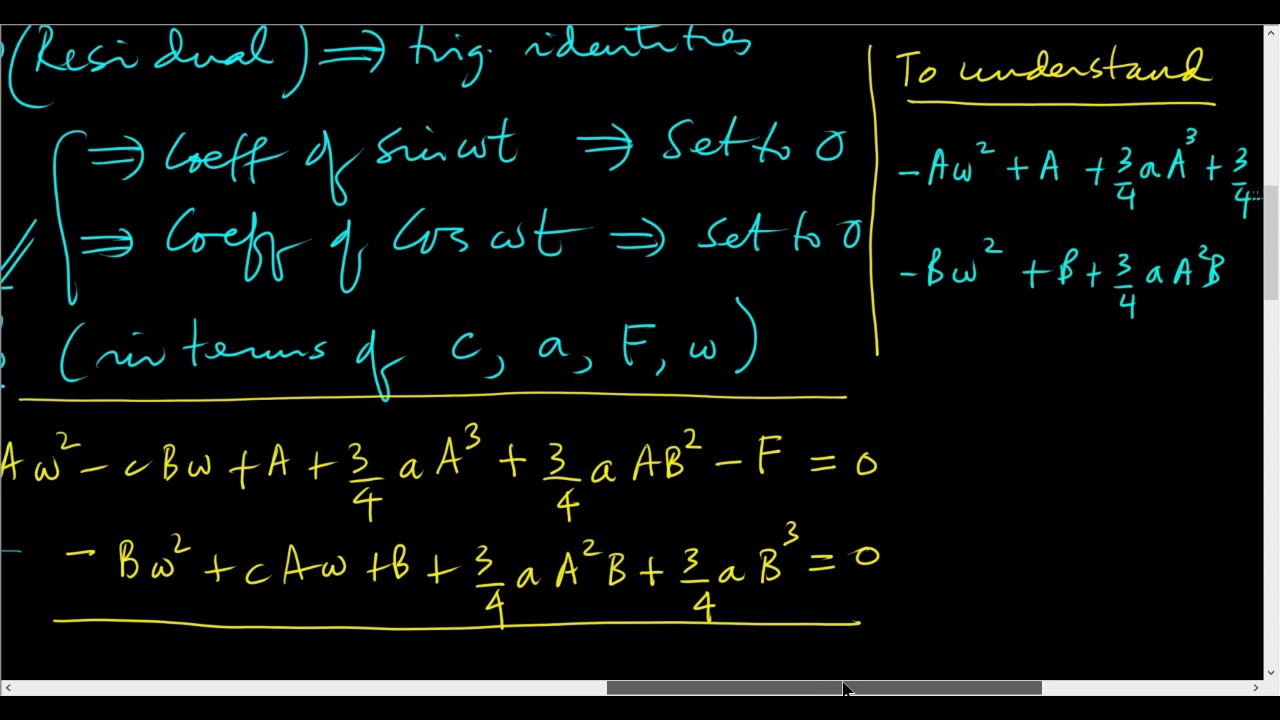 (Residual) ⇒ trig. identities
⇒ Coeff of sin ωt ⇒ Set to 0
⇒ Coeff of Cos ωt ⇒ set to 0
(in terms of c, a, F, ω)
Aω² - cBω + A + 3/4 a A³ + 3/4 a AB² - F = 0
- Bω² + cAω + B + 3/4 a A²B + 3/4 a B³ = 0
To understand
-Aω² + A + 3/4 aA³ + 3/4
-Bω² + B + 3/4 a A²B